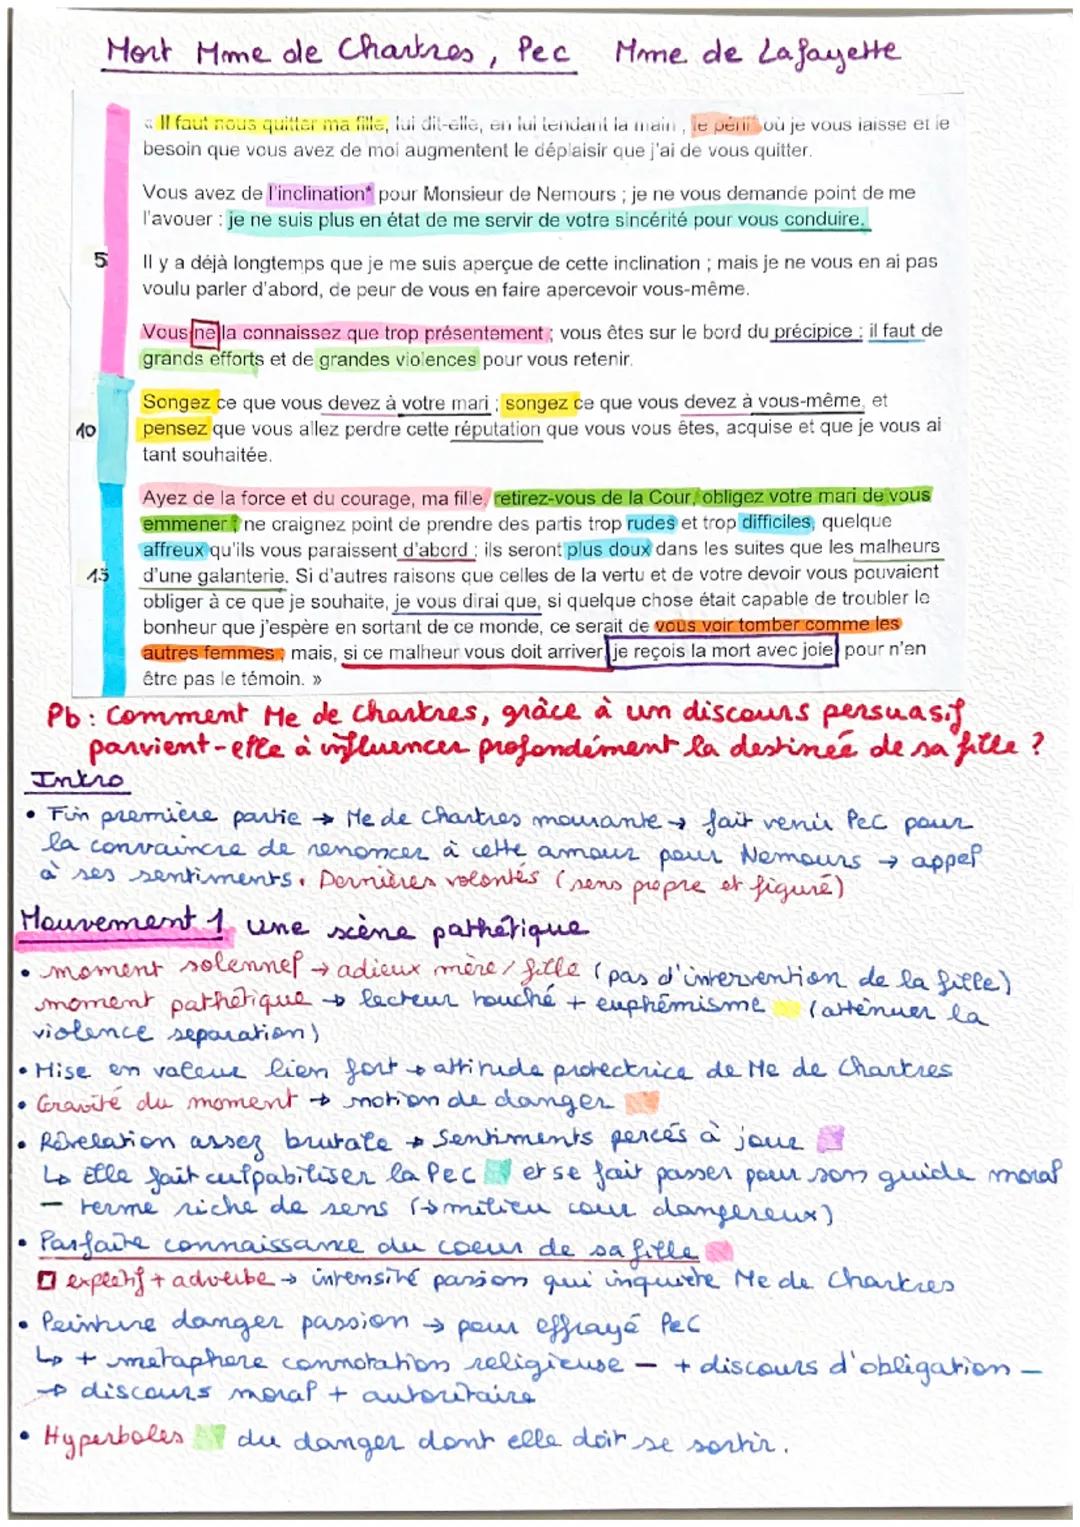 Mort Mme de Chartres, PeC Mme de Lafayette
« Il faut nous quitter ma fille, lui dit-elle, en lui tendant la main , le péril où je vous laisse et le
besoin que vous avez de moi augmentent le déplaisir que j'ai de vous quitter.
Vous avez de l'inclination* pour Monsieur de Nemours ; je ne vous demande point de me
l'avouer : je ne suis plus en état de me servir de votre sincérité pour vous conduire.
5
Il y a déjà longtemps que je me suis aperçue de cette inclination ; mais je ne vous en ai pas
voulu parler d'abord, de peur de vous en faire apercevoir vous-même.
Vous ne la connaissez que trop présentement ; vous êtes sur le bord du précipice ; il faut de
grands efforts et de grandes violences pour vous retenir.
Songez ce que vous devez à votre mari ; songez ce que vous devez à vous-même, et
10 pensez que vous allez perdre cette réputation que vous vous êtes, acquise et que je vous ai
tant souhaitée.
Ayez de la force et du courage, ma fille, retirez-vous de la Cour, obligez votre mari de vous
emmener ; ne craignez point de prendre des partis trop rudes et trop difficiles, quelque
affreux qu'ils vous paraissent d'abord : ils seront plus doux dans les suites que les malheurs
15 d'une galanterie. Si d'autres raisons que celles de la vertu et de votre devoir vous pouvaient
obliger à ce que je souhaite, je vous dirai que, si quelque chose était capable de troubler le
bonheur que j'espère en sortant de ce monde, ce serait de vous voir tomber comme les
autres femmes ; mais, si ce malheur vous doit arriver, je reçois la mort avec joie pour n'en
être pas le témoin. »
Pb : Comment Me de Chartres, grâce à un discours persuasif
parvient-elle à influencer profondément la destinée de sa fille ?
Intro
• Fin première partie → Me de Chartres mourante → fait venir PeC pour
la convaincre de renoncer à cette amour pour Nemours → appel
à ses sentiments. Dernières volontés (sens propre et figuré)
Mouvement 1 une scène pathétique
• moment solennel → adieux mère/fille (pas d'intervention de la fille)
moment pathétique → lecteur touché + euphémisme (atténuer la
violence separation)
• Mise en valeur lien fort → attitude protectrice de Me de Chartres
• Gravité du moment → notion de danger
• Révelation assez brutale → Sentiments percés à jour
↳ Elle fait culpabiliser la PeC et se fait passer pour son guide moral
— terme riche de sens (→ milieu cour dangereux)
• Parfaite connaissance du coeur de sa fille
explétif + adverbe → intensité passion qui inquiète Me de Chartres
• Peinture danger passion → pour effrayé PeC
↳ + métaphore connotation religieuse — + discours d'obligation —
→ discours moral + autoritaire
• Hyperboles du danger dont elle doit se sortir.